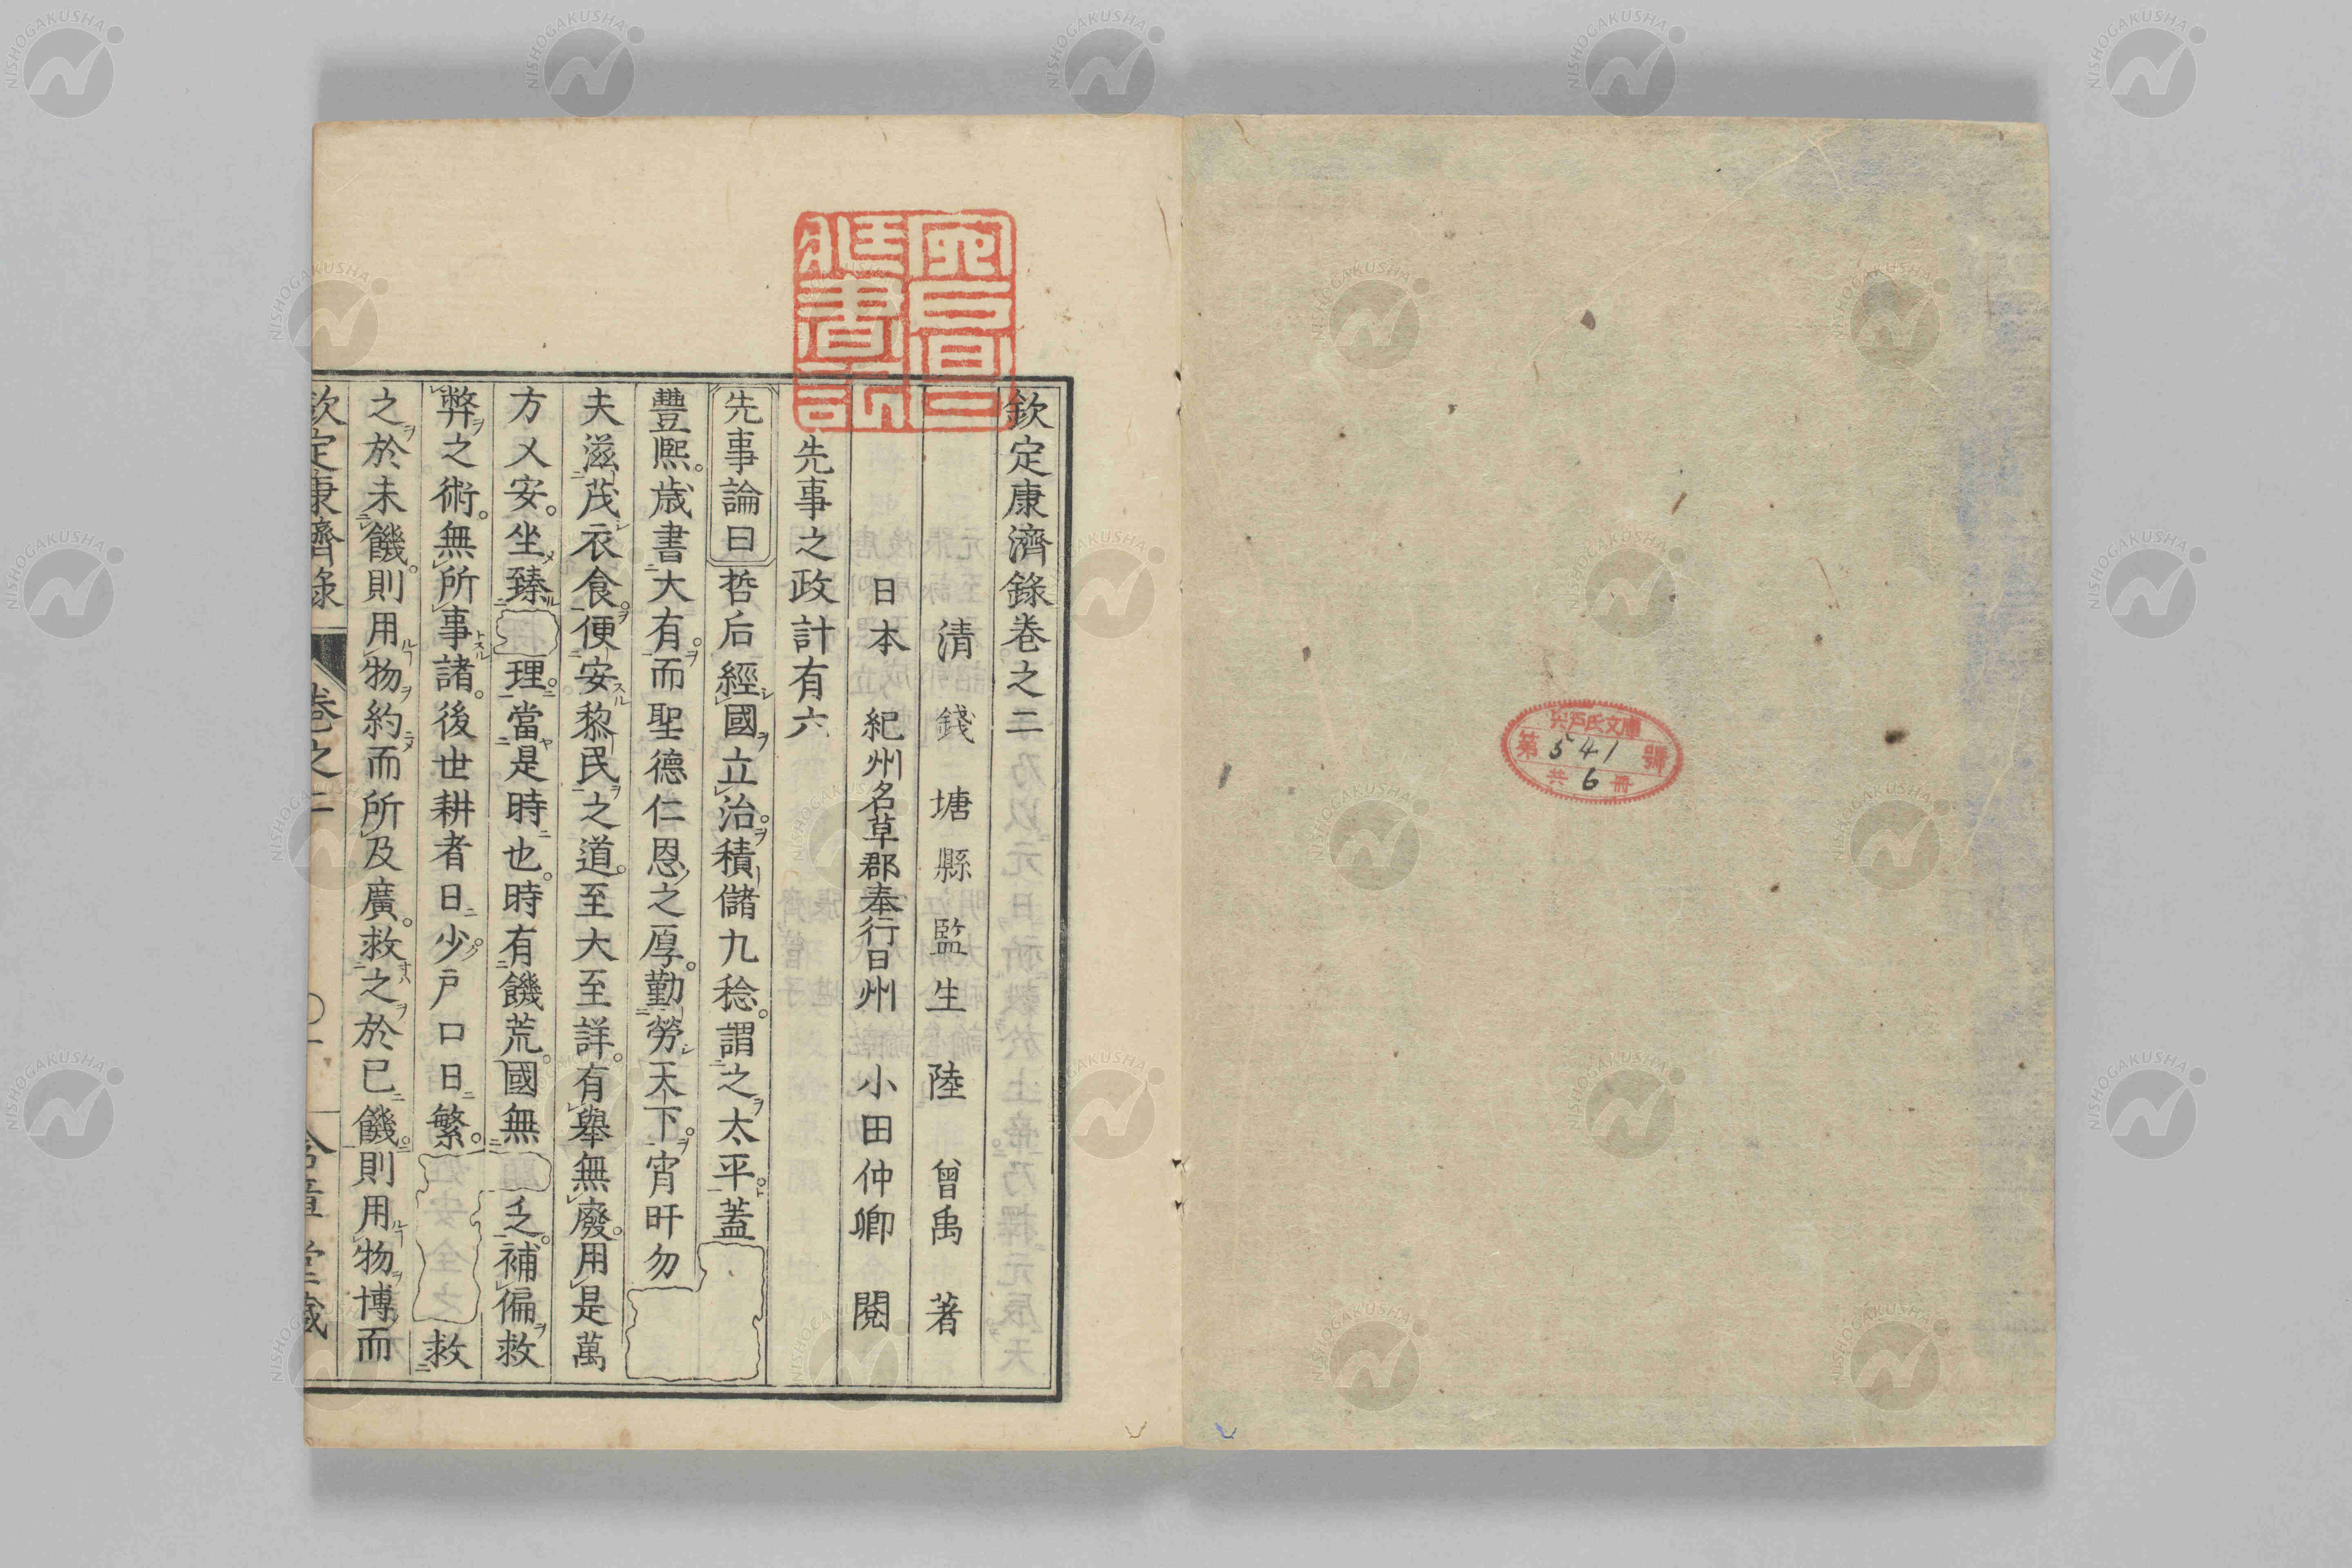 宍戸氏文庫
第541號
共6冊
欽定康濟錄卷之二
清 錢塘縣監生 陸曾禹 著
日本 紀州名草郡奉行日州 小田仲卿 閱
先事之政計有六
先事論曰哲后經國立治積儲九稔謂之太平蓋
豐熙歲書大有而聖德仁恩之厚勤勞天下宵旰勿
夫滋茂衣食便安黎民之道至大至詳有舉無廢用是萬
方乂安坐臻 理當是時也時有饑荒國無 乏補偏救
弊之術無所事諸後世耕者日少戶口日繁 救
之於未饑則用物約而所及廣救之於已饑則用物博而
欽定康濟錄 卷之二
NISHOGAKUSHA